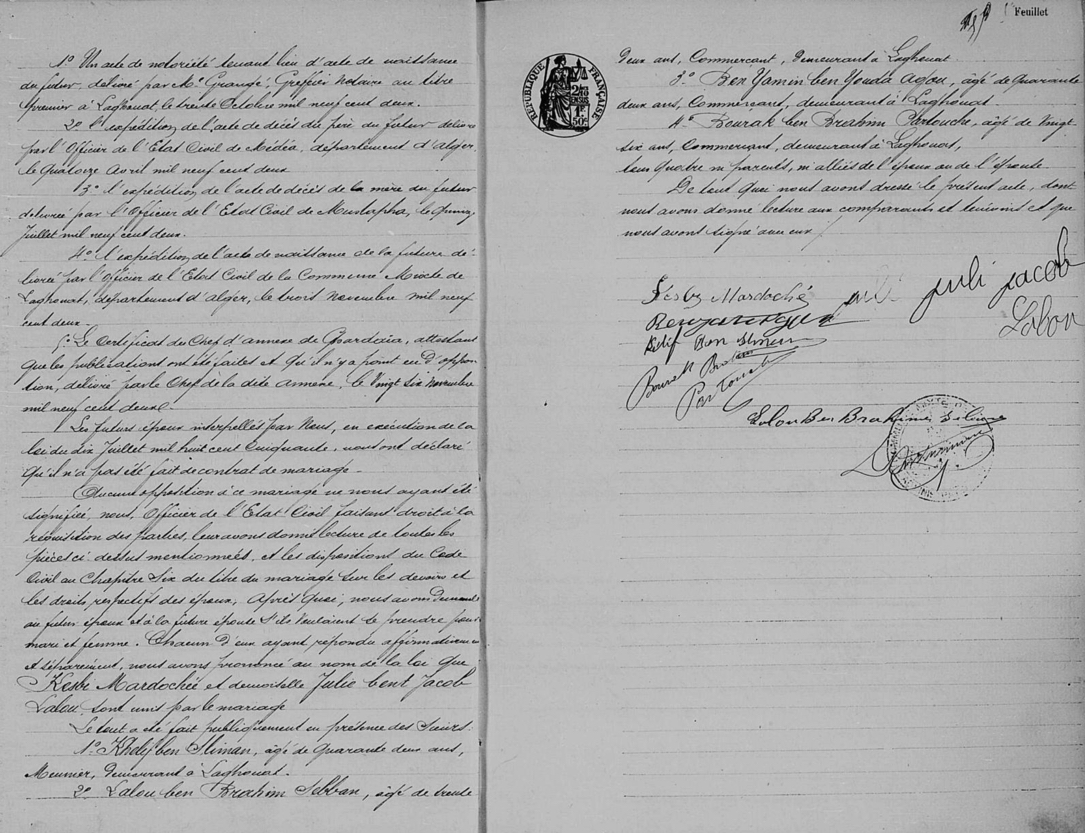 1º Un acte de notoriété tenant lieu d'acte de naissance
du futur, délivré par Mº Grangé, Greffier Notaire au titre
premier à Laghouat, le trente Octobre mil neuf cent deux.
2º l'expédition de l'acte de décès du père du futur délivré
par l'Officier de l'Etat Civil de Médéa, département d'Alger,
le Quatorze Avril mil neuf cent deux
3º l'expédition de l'acte de décès de la mère du futur
délivrée par l'Officier de l'Etat Civil de Mustapha, le quinze
Juillet mil neuf cent deux.
4º l'expédition de l'acte de naissance de la future dé-
livrée par l'Officier de l'Etat Civil de la Commune Mixte de
Laghouat, département d'Alger, le trois Novembre mil neuf
cent deux.
5º Le Certificat du Chef d'annexe de Ghardaïa, attestant
que les publications ont été faites et qu'il n'y a point eu d'oppo-
tion, délivré par le Chef de la dite Annexe, le Vingt six Novembre
mil neuf cent deux.
Les futurs époux interpellés par Nous, en exécution de la
loi du dix Juillet mil huit cent Cinquante, nous ont déclaré
Qu'il n'a pas été fait de contrat de mariage.
Aucune opposition à ce mariage ne nous ayant été
signifiée, nous, Officier de l'Etat Civil faisant droit à la
réquisition des parties, leur avons donné lecture de toutes les
pièces ci-dessus mentionnées, et les dispositions du Code
Civil au Chapitre Six du titre du mariage sur les devoirs et
les droits respectifs des époux, Après Quoi, nous avons demandé
au futur époux et à la future épouse S'ils Voulaient se prendre pour
mari et femme. Chacun d'eux ayant répondu affirmativement
et séparément, nous avons prononcé au nom de la loi que
Kesbi Mardochée et demoiselle Julie bent Jacob
Lalou sont unis par le mariage
Le tout a été fait publiquement en présence des Sieurs.
1º Khalif ben Sliman, âgé de Quarante deux ans,
Meunier, demeurant à Laghouat.
2º Lalou ben Brahim Sebban, âgé de trente
Feuillet
REPUBLIQUE FRANÇAISE
deux ans, Commerçant, demeurant à Laghouat
3º Ben Yamin ben Youda Agou, âgé de Quarante
deux ans, Commerçant, demeurant à Laghouat
4º Bourak ben Brahim Partouche, âgé de Vingt-
six ans, Commerçant, demeurant à Laghouat,
tous Quatre ni parents, ni alliés de l'époux ou de l'épouse.
De tout Quoi nous avons dressé le présent acte, dont
nous avons donné lecture aux comparants et témoins et que
nous avons signé avec eux
Kesby Mardoché
juli jacob
Lalou
Kelif ben Sliman
Bourak Brahim
Partouch
Lalou Ben Brahime